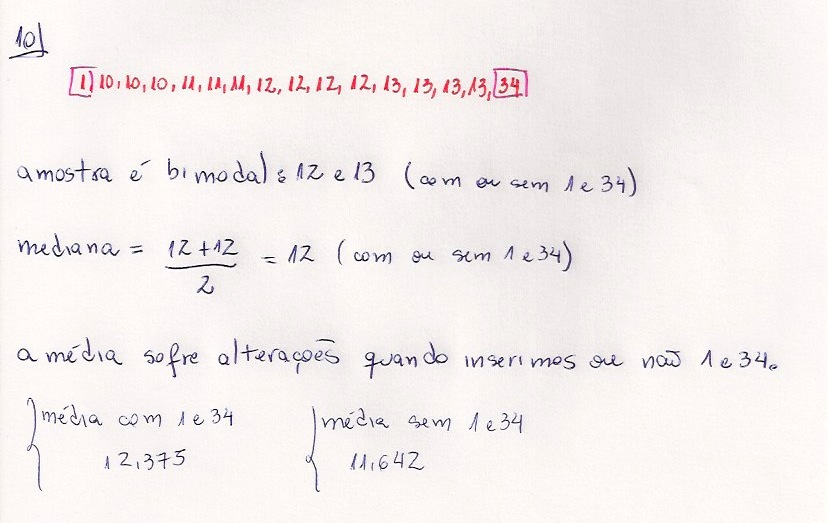 10)
1, 10, 10, 10, 11, 11, 11, 12, 12, 12, 12, 13, 13, 13, 13, 34
amostra é bimodal: 12 e 13 (com ou sem 1 e 34)
mediana = (12+12)/2 = 12 (com ou sem 1 e 34)
a média sofre alterações quando inserimos ou não 1 e 34.
média com 1 e 34
12,375
média sem 1 e 34
11,642